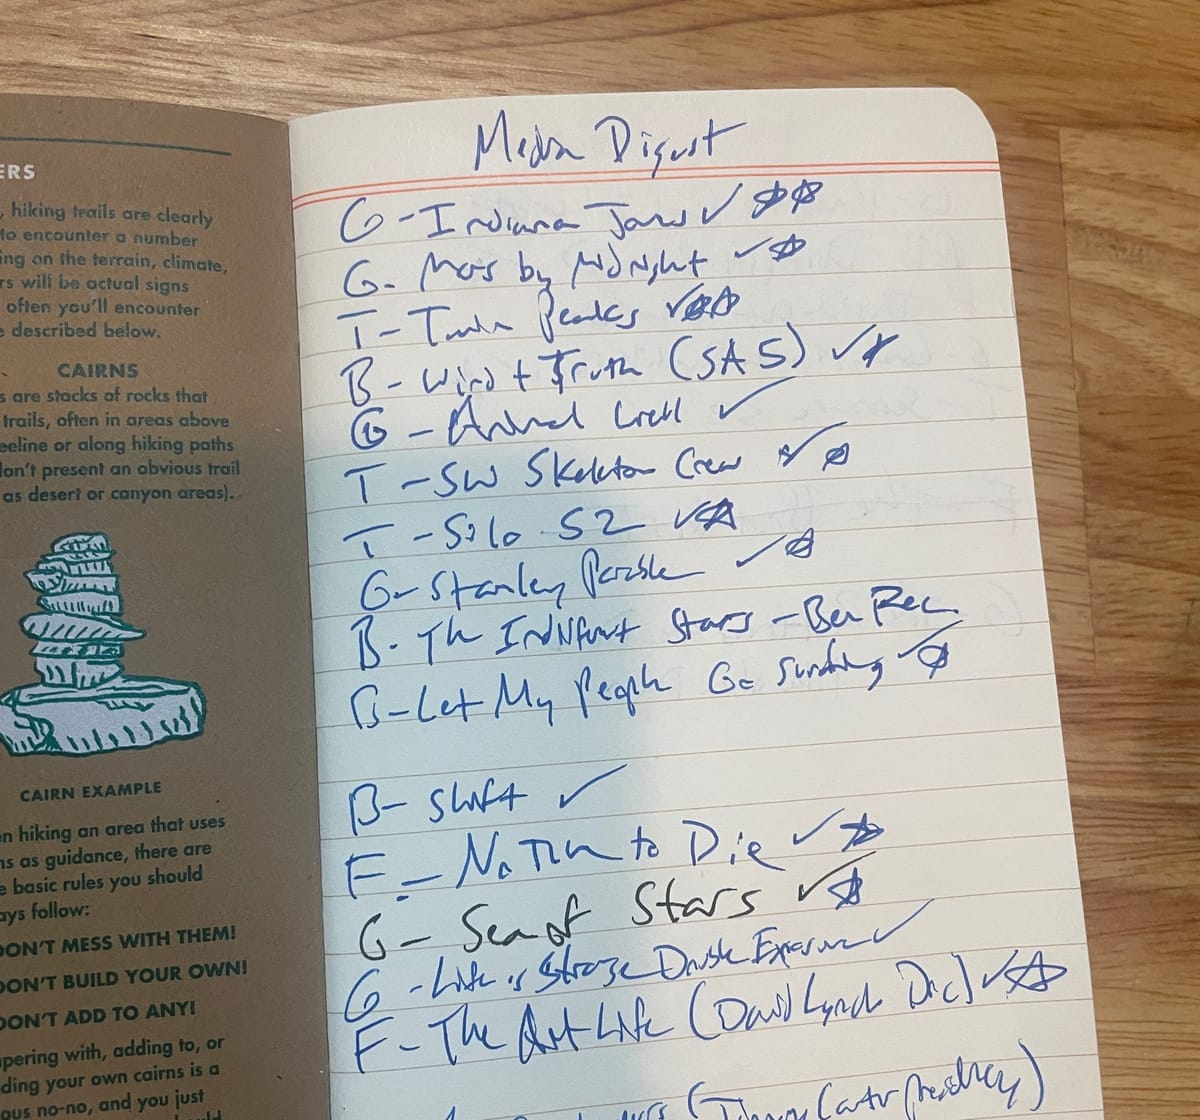 ERS
, hiking trails are clearly
to encounter a number
ing on the terrain, climate,
rs will be actual signs
often you'll encounter
e described below.
CAIRNS
s are stacks of rocks that
trails, often in areas above
eeline or along hiking paths
don't present an obvious trail
as desert or canyon areas).
CAIRN EXAMPLE
en hiking an area that uses
ns as guidance, there are
e basic rules you should
ays follow:
DON'T MESS WITH THEM!
DON'T BUILD YOUR OWN!
DON'T ADD TO ANY!
pering with, adding to, or
ding your own cairns is a
ous no-no, and you just
Media Digest
G - Indiana Jones ✓ ☆☆
G - Mars by Midnight ✓ ☆
T - Twin Peaks ✓ ☆☆
B - Wind + Truth (SA 5) ✓ ☆
G - Animal Well ✓
T - SW Skeleton Crew ✓ ☆
T - Silo S2 ✓ ☆
G - Stanley Parable ✓ ☆
B - The Indifferent Stars - Ben Rec.
B - Let My People Go Surfing ✓ ☆
B - Shift ✓
F - No Time to Die ✓ ☆
G - Sea of Stars ✓ ☆
G - Life is Strange Double Exposure ✓
F - The Art Life (David Lynch Doc) ✓ ☆
(Jimmy Carter presidency)